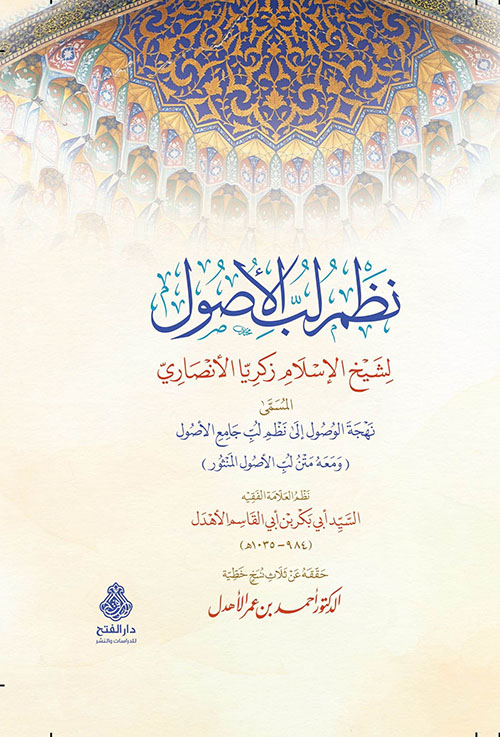 نَظْمُ لُبِّ الأُصُولِ
لِشَيْخِ الإِسْلَامِ زَكَرِيَّا الأَنْصَارِيِّ
المُسَمَّىٰ
نَهْجَةَ الوُصُولِ إِلَىٰ نَظْمِ لُبِّ جَامِعِ الأُصُول
( وَمَعَهُ مَتْنُ لُبِّ الأُصُولِ المَنْثُورِ )
نَظْمُ العَلَّامَةِ الفَقِيْهِ
السَّيِّدِ أَبِي بَكْرِ بْنِ أَبِي القَاسِمِ الأَهْدَل
(٩٨٤ - ١٠٣٥هـ)
حَقَّقَهُ عَنْ ثَلَاثِ نُسَخٍ خَطِّيَّة
الدكتور أحمد بن عمر الأهدل
دار الفتح
للدراسات والنشر